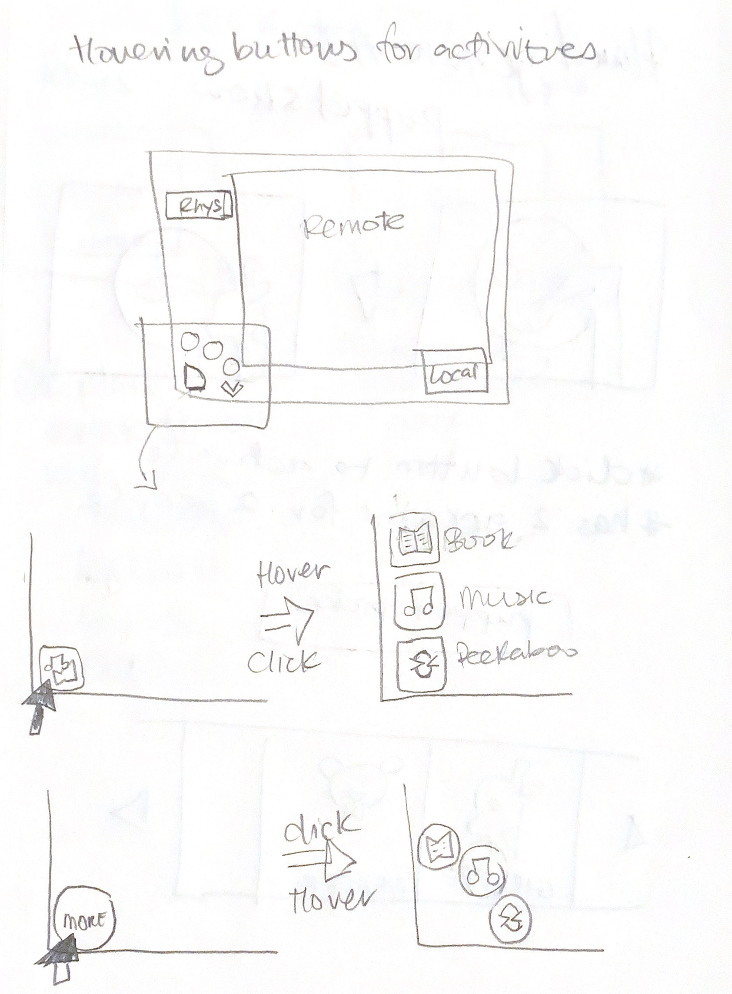 Hovering buttons for activities.
Rhys
Remote
Local
Book
Hover
Music
Click
Peekaboo
click
Hover
MORE